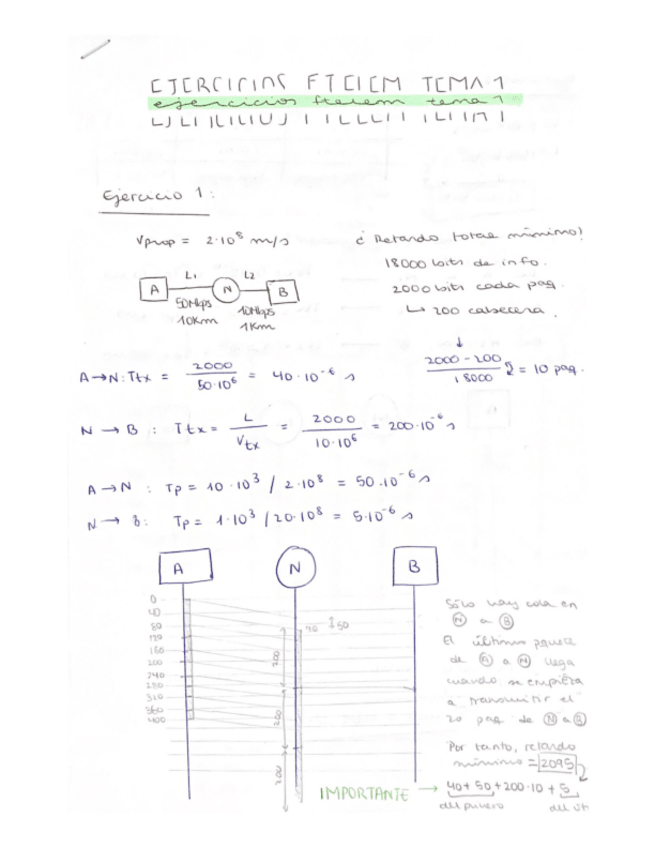 EJERCICIOS FTELEM TEMA 1
ejercicios ftelem tema 1
Ejercicio 1:
Vprop = 2·10⁸ m/s
¿ Retardo total mínimo?
18000 bits de info.
2000 bits cada paq.
↳ 200 cabecera.
A L1 N L2 B
50Mbps 10Mbps
10Km 1Km
↓
2000 - 200
18000
= 10 paq.
A→N: Ttx = 2000 / 50·10⁶ = 40·10⁻⁶ s
N → B : Ttx = L / Vtx = 2000 / 10·10⁶ = 200·10⁻⁶ s
A → N : Tp = 10·10³ / 2·10⁸ = 50·10⁻⁶ s
N → B: Tp = 1·10³ /20·10⁸ = 5·10⁻⁶ s
A N B
0
40
80
120
160
200
240
280
310
360
400
40 ↕50
200
200
200
Sólo hay cola en
N a B
El último paquete
de A a N llega
cuando se empieza
a transmitir el
2o paq. de N a B
Por tanto, retardo
mínimo = 2095
IMPORTANTE → 40+ 50 +200·10 + 5
del primero del últ